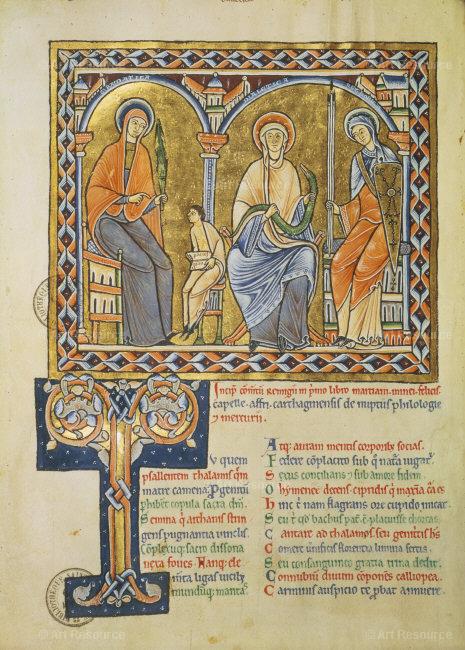 GRAMATICA
DIALETICA
Incip̄ com̄tū Remigii in p̄mo libro martiani. minei. felicis
capelle. affri. cartaginensis de nuptiis philologie
⁊ mercurii.
Tu quem
psallentem thalamis qm̄
matre camena. Pgenitū
copula sacra
Semina q̄ archanis strin
gens pugnantia uinclis.
Cōplexuq; sacro dissona
nexa foues. Namq; ele
m̄ta ligas uicib;
mundūq; maritas
Atq; auram mentis corporib; socias.
Federe cōplacito sub q̄ nat̄a iugat᷑.
Sexus concilians ⁊ sub amore fidem.
O hymenee decens cipridis q̄ maxīa cura es
hinc t̄ nam flagrans ore cupido micat.
Seu t̄ qd̄ bachus pat̄ ē placuisse choreas
Cantare ad thalamos seu genitͥcis hē
Comere uernificis florentia limina sertis.
Seu consanguineo gratia trina dedit.
Connubiū diuum cōponens calliopea
Carminis auspicio te p̄bat annuere.
© Art Resource